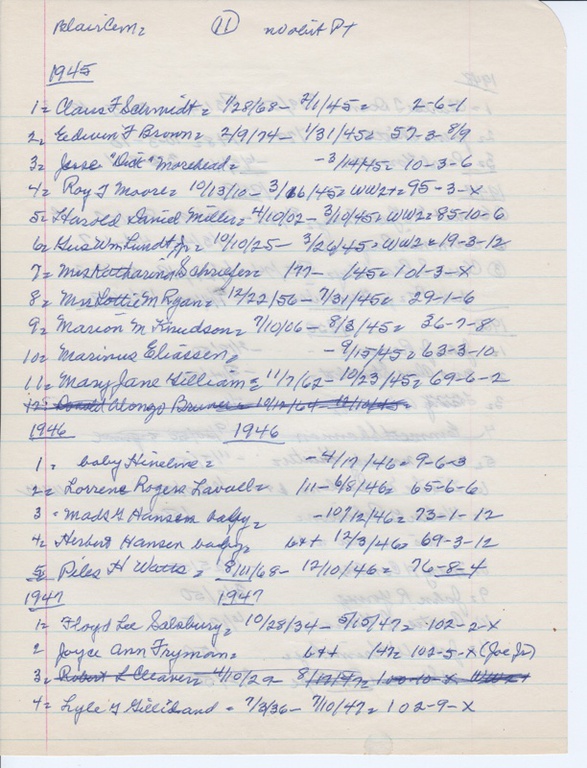 Blair Cem= (11) no obit Pt
1945
1= Claus F Schmidt= 1/28/68- 2/1/45= 2-6-1
2= Edwin F Brown= 2/9/74- 1/31/45= 57-3-8/9
3= Jesse "Dick" Morehead= -3/14/45= 10-3-6
4= Roy J Moore= 10/13/10- 3/6/45= WW2+= 95-3-X
5= Harold David Miller= 4/10/02- 3/10/45= WW2= 85-10-6
6= Gus Wm Lundt Jr= 10/10/25- 3/26/45= WW2= 19-3-12
7= Mrs Katharine Schriefer= 1/77- /45= 101-3-X
8= Mrs Lottie M Ryan= 12/22/56- 7/31/45= 29-1-6
9= Marion M Knudson= 7/10/06- 8/3/45= 36-7-8
10= Marinus Eliassen= -9/15/45= 63-3-10
11= Mary Jane Gilliam= 11/7/62- 10/23/45= 69-6-2
12= Donald Alonzo Bruner= 10/12/64- 12/10/45=
1946 1946
1= baby Hineline= -4/17/46= 9-6-3
2= Lorrene Rogers Lavall= 1/11-6/8/46= 65-6-6
3= Mads G Hansen baby= -10/12/46= 73-1-12
4= Herbert Hansen baby= b++ 12/3/46= 69-3-12
5= Riles H Watts= 8/11/68- 12/10/46= 76-8-4
1947 1947
1= Floyd Lee Salsbury= 10/28/34- 5/15/47= 102-2-X
2 Joyce Ann Fryman= b++ /47= 102-5-X (Joe Jr)
3= Robert L Cleaver= 4/10/29- 8/17/47= 100-10-X WW2+
4= Lyle G Gilliland= 7/3/36- 7/10/47= 102-9-X